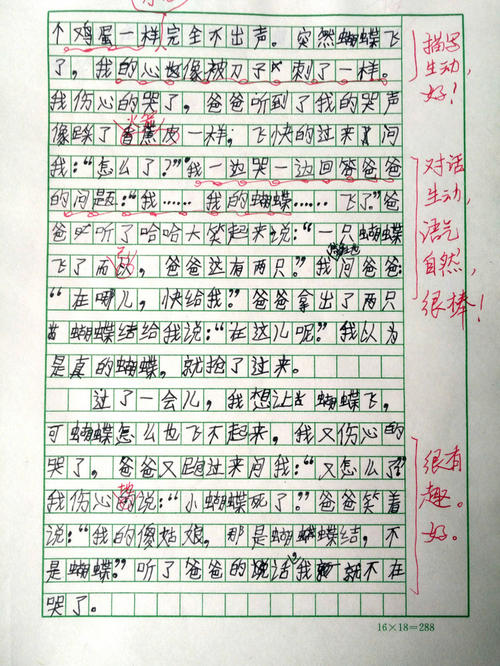 个鸡蛋一样完全不出声。突然蝴蝶飞
了，我的心也像被刀子刺了一样。
我伤心的哭了，爸爸听到了我的哭声
像踩了香蕉皮一样，飞快的过来问
我："怎么了？"我一边哭一边回答爸爸
的问题："我……我的蝴蝶……飞了"爸
爸听了哈哈大笑起来说："一只蝴蝶
飞了而已，爸爸这有两只"我问爸爸：
"在哪儿，快给我"爸爸拿出了两只
蝴蝶结给我说："在这儿呢"我以为
是真的蝴蝶，就抢了过来。
过了一会儿，我想让蝴蝶飞，
可蝴蝶怎么也飞不起来，我又伤心的
哭了，爸爸又跑过来问我："又怎么了"
我伤心地说："小蝴蝶死了"爸爸笑着
说："我的傻姑娘，那是蝴蝶结，不
是蝴蝶"听了爸爸的话，我就不在
哭了。
描写
生动，
好！
对话
生动，
语气
自然，
很棒！
很有
趣。
好。
16×18=288